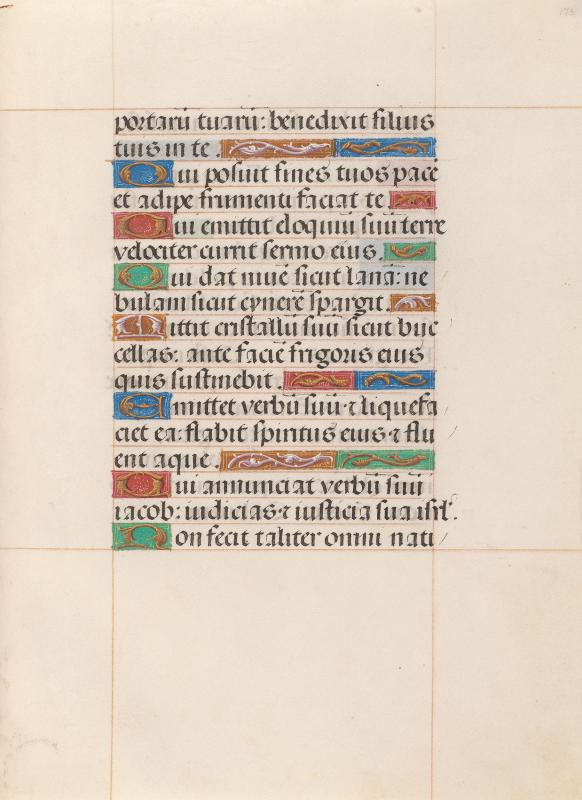 portarū tuarū: benedixit filiis
tuis in te.
Qui posuit fines tuos pacē
et adipe frumenti faciat te.
Qui emittit eloquiū suū terre
velociter currit sermo eius.
Qui dat nivē sicut lanā: ne
bulam sicut cynerē spargit.
Mittit cristallū suū sicut buc
cellas: ante faciē frigoris eius
quis sustinebit.
Emittet verbū suū ⁊ liquefa
ciet ea: flabit spiritus eius ⁊ flu
ent aque.
Qui annunciat verbū suū
iacob: iudicias ⁊ iusticia sua isrl̄.
Non fecit taliter omni nati
173